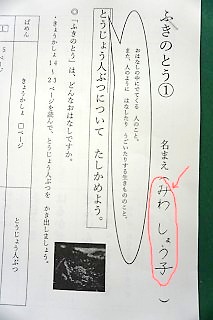 ふきのとう①
名まえ（みわ しょう子）
おはなしの中にでてくる 人のこと。
また、人のように はなしたり うごいたりする生きもののこと。
とうじょう人ぶつについて たしかめよう。
◎「ふきのとう」は、どんなおはなしですか。
・きょうかしょ14～23ページを読んで、とうじょう人ぶつを かき出しましょう。
ばめん
きょうかしょ □ページ
とうじょう人ぶつ
1
ページ